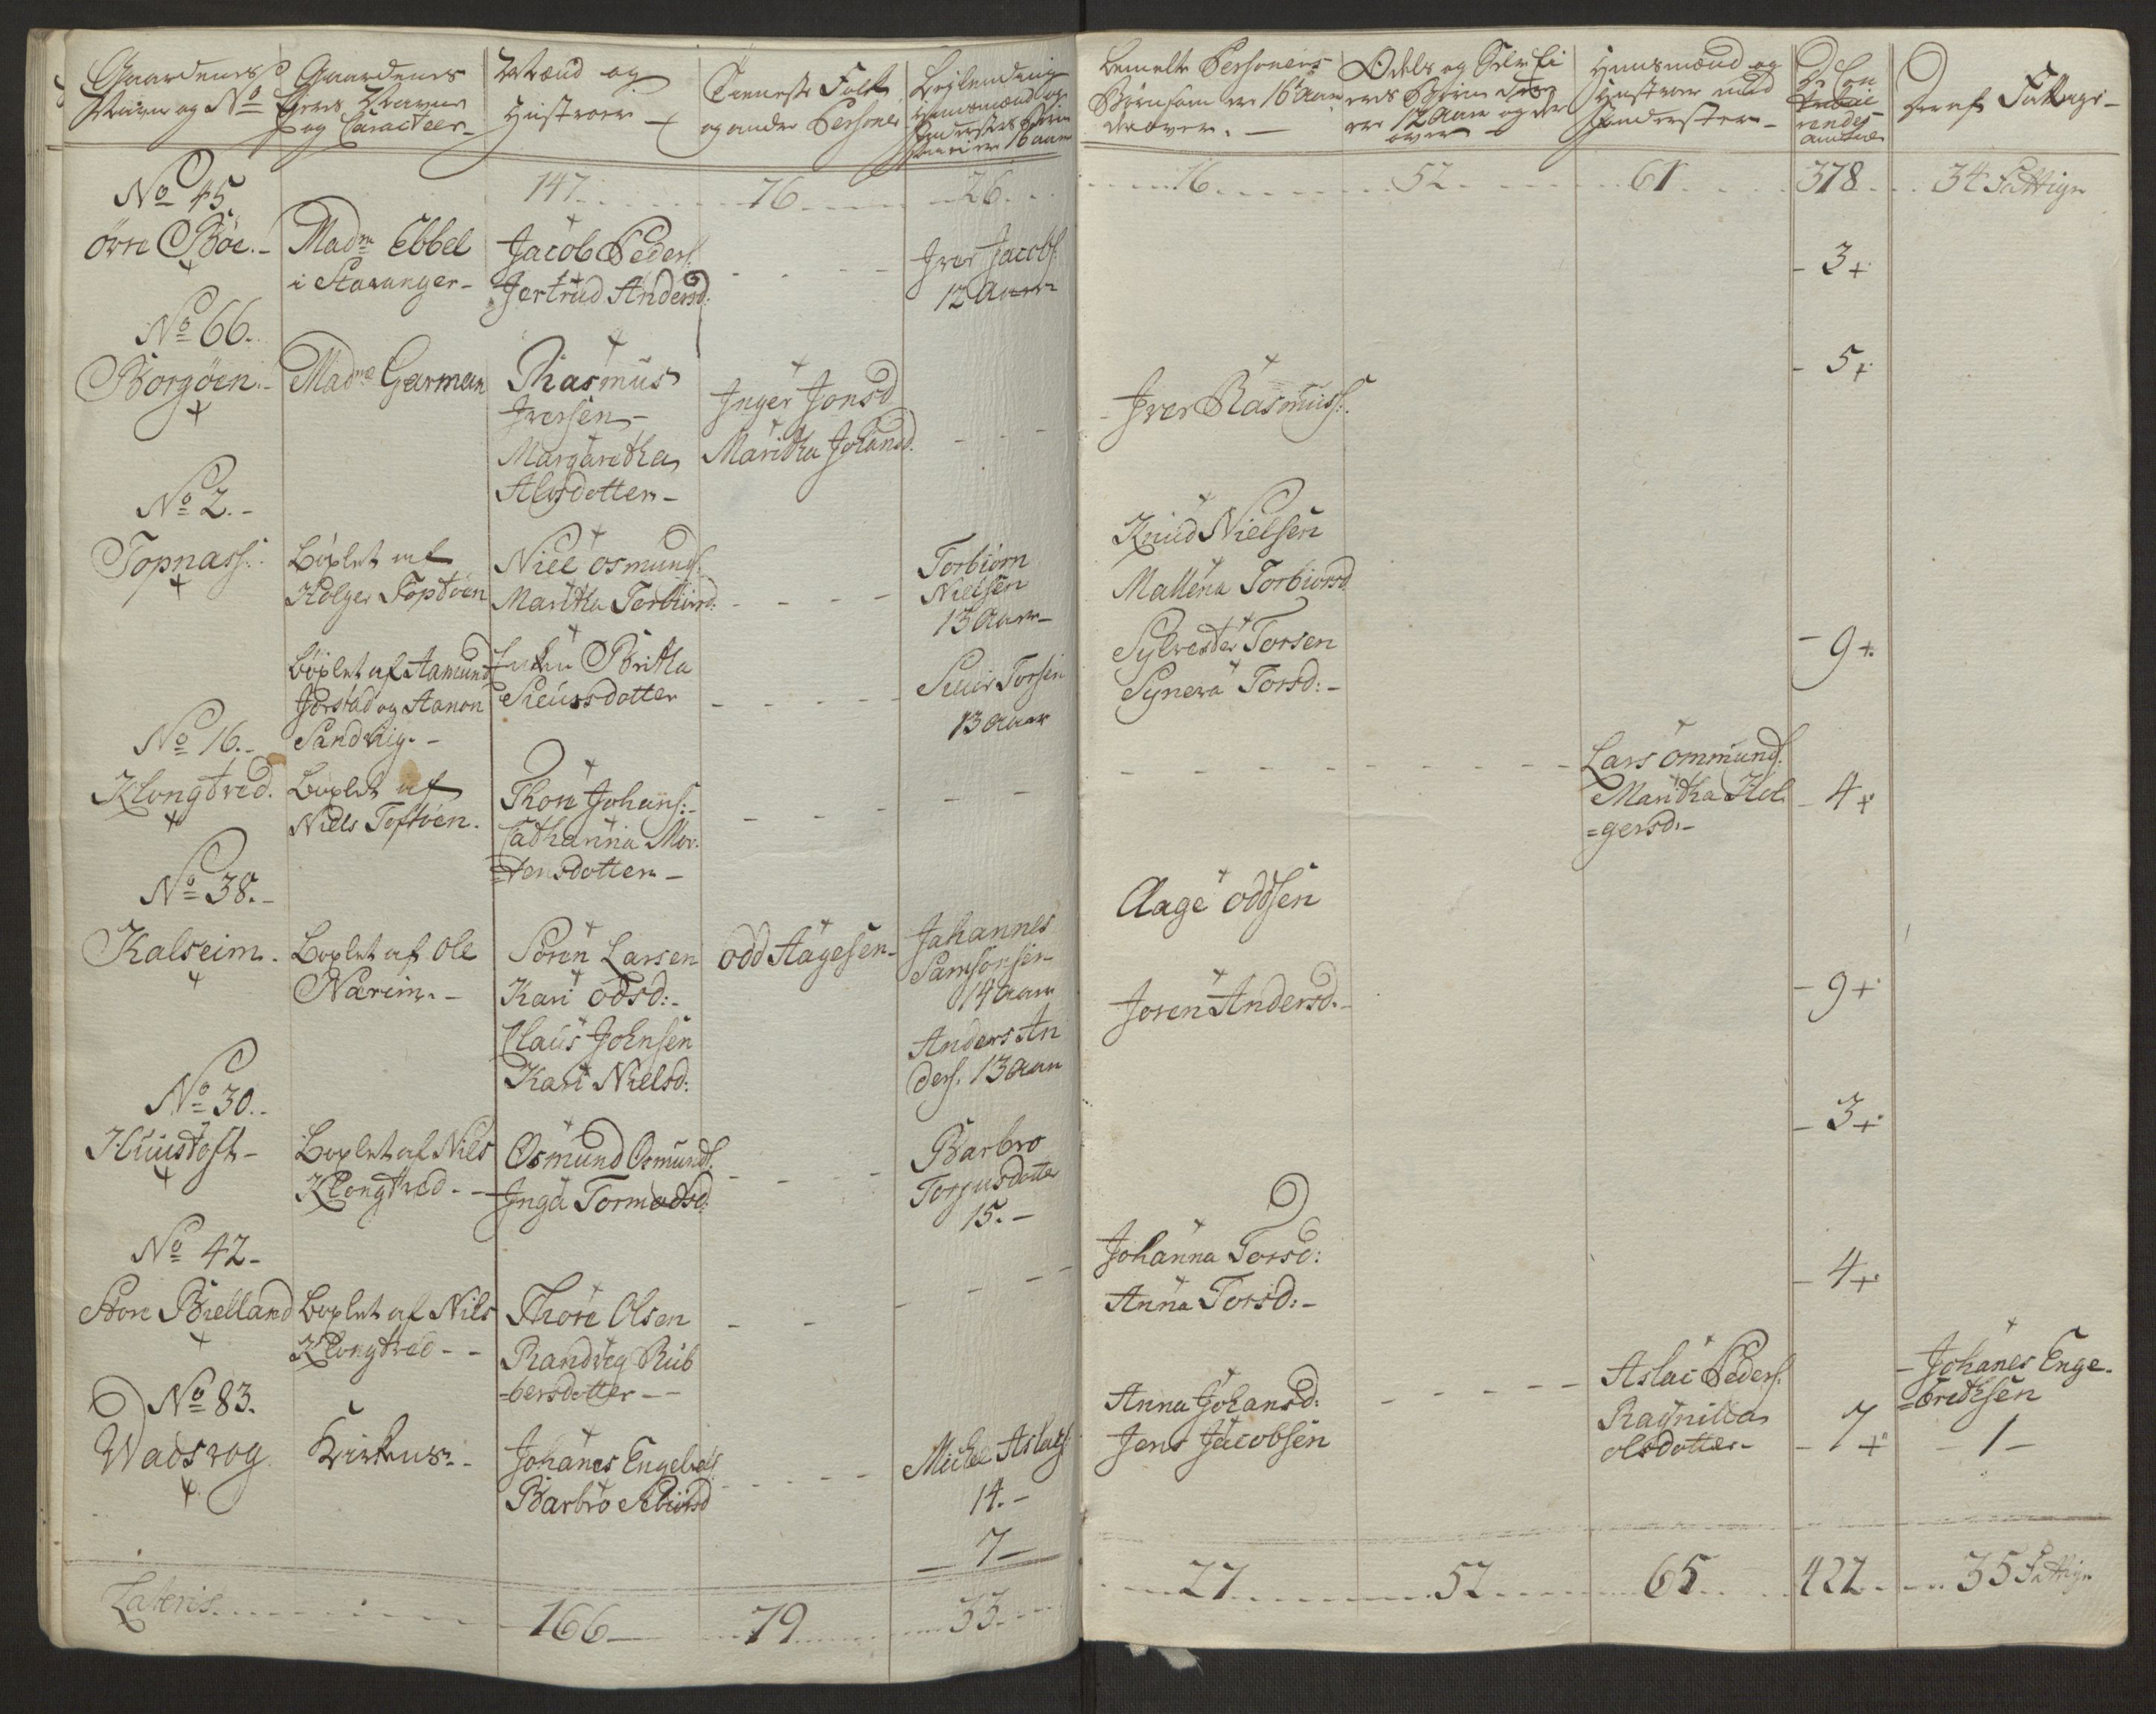 Gaardenes Navn og No
Gaardenes Eyers Navne og Caracteer
Mænd og Hustroer
Tieneste Folk og andre Personer
Bemelte Personers Børn som er 16 Aar derover.
Odels og
Huusmænd og Hustroer med
Deraf Fattige
147 76 26 16 52 61 378 34 Fattige
No 45.
øvre Bøe.
Madm Ebbel
i Stavanger
Jacob Peders:
Jertrud Andersd:
Iver Jacobs:
12 Aar
3
No 66.
Borgøen.
Madme Garman
Rasmus
Iversen
Margaretha
Alvsdotter
Inger Jonsd
Maritha Johansd.
Iver Rasmuss:
5
No 2.
Topnass:
Bøxlet af
Holger Toptøen
Niel Osmunds:
Maritha Torbiørsd:
Torbiørn
Nielsen
13 Aar
Knud Nielsen
Mallena Torbiorsd
Bøxlet af Aamund
Jørstad og Aanon
Sandvig.
Enken Britha
Siursdotter
Siur Torsen
13 Aar
Sylvester Torsen
Synera Torsd:
9
No 16.
Klongtved.
Bøxlet af
Niels Toftøen.
Thore Johans:
Catharina Mor-
=tensdotter
Lars Ommunds:
Maritha Hol
=gersd:
4
No 38.
Kalseim.
Boxlet af Ole
Nærim.
Søren Larsen
Kari Odsd:
Claus Johnsen
Kari Nielsd:
Odd Aagesen
Johannes
Samsonsen
14 Aar
Anders An
ders. 13 Aar
Aage Oddsen
Joren Andersd.
9
No 30.
Huustoft
Boxlet af Nils
Klongtved.
Osmund Osmunds:
Inga Tormodsd:
Barbro
Torgusdotter
15.
3
No 42
Store Bielland
Boxlet af Nils
Klongtved
Thore Olsen
Randveg Rub
=bersdotter
Johanna Torsd:
Anna Torsd:
4
No 83.
Wadsvog
Kirkens.
Johanes Engebrets
Barbro
Michel Aslaks:
14.
Anna Johansd:
Jens Jacobsen
Aslac Peders:
Ragnilla
Olsdotter
7
Johanes Enge-
=brethsen
1
7
Lateris
166 79 33 27 52 65 422 35 Fattige